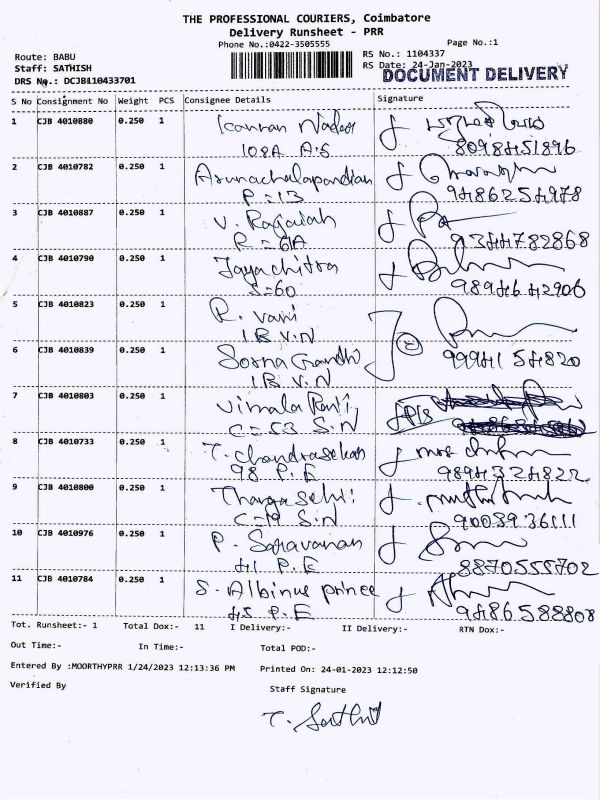 THE PROFESSIONAL COURIERS, Coimbatore
Delivery Runsheet - PRR
Phone No.:0422-3505555
Page No.:1
Route: BABU
RS No.: 1104337
Staff: SATHISH
RS Date: 24-Jan-2023
DRS No.: DCJB110433701
DOCUMENT DELIVERY
S No Consignment No Weight PCS Consignee Details Signature
1 CJB 4010880 0.250 1 Nadar
108A A.S 8098451896
2 CJB 4010782 0.250 1 Arunachalapandian
P=13 9486254978
3 CJB 4010887 0.250 1 V. Rajaiah
R=61A 9344782868
4 CJB 4010790 0.250 1 Jayachitra
S=60 9894642906
5 CJB 4010823 0.250 1 R. Vani
1B V.N
6 CJB 4010839 0.250 1 Sorna Gandhi 9994154820
1B V.N
7 CJB 4010803 0.250 1 Vimala Rani
C=53 S.N
8 CJB 4010733 0.250 1 T. Chandrasekar
98 P.E 9894324822
9 CJB 4010800 0.250 1 Thanga Selvi
C=19 S.N 9008936111
10 CJB 4010976 0.250 1 P. Saravanan
41 P.E 8870555702
11 CJB 4010784 0.250 1 S. Albinus prince
45 P.E 9486588808
Tot. Runsheet:- 1 Total Dox:- 11 I Delivery:- II Delivery:- RTN Dox:-
Out Time:- In Time:- Total POD:-
Entered By :MOORTHYPRR 1/24/2023 12:13:36 PM Printed On: 24-01-2023 12:12:50
Verified By Staff Signature